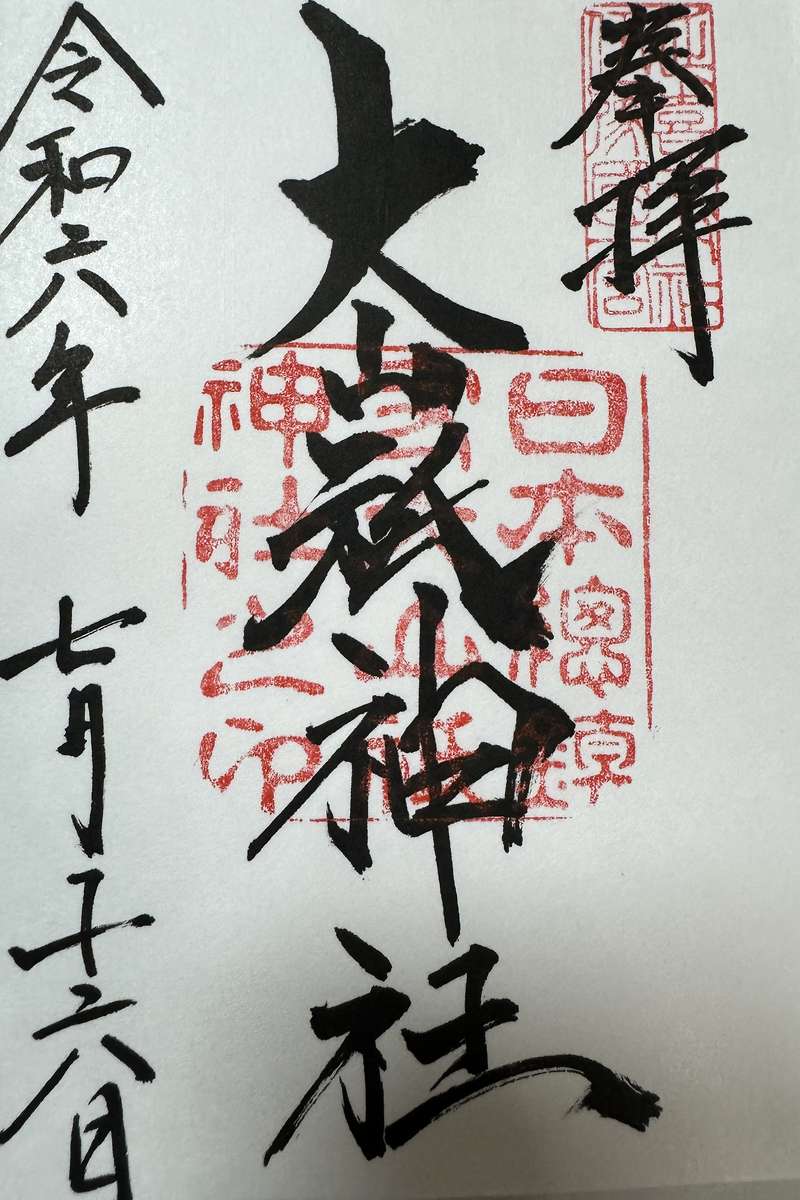 奉拝
大山祇神社
令和六年 七月十六日
日本總鎮
守大山祇
神社之印